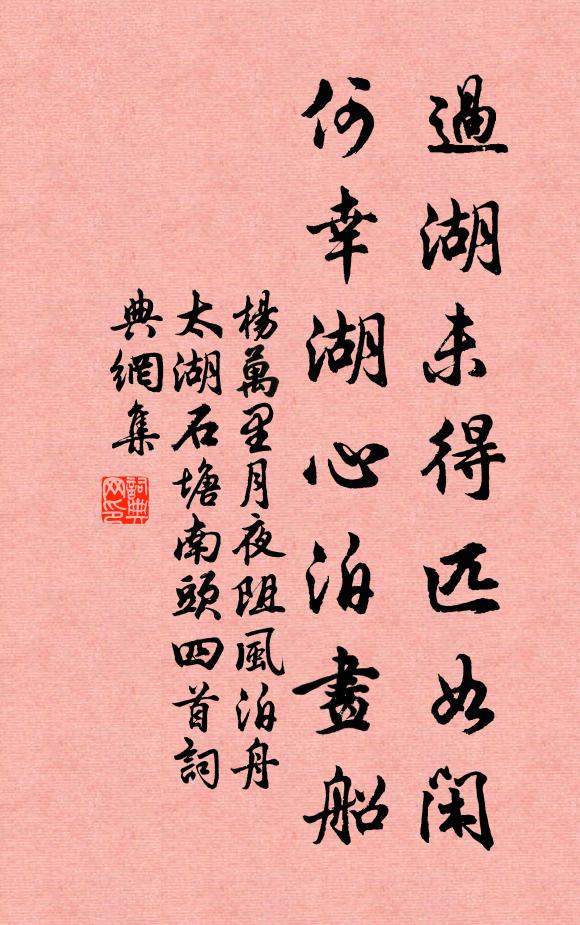 過湖未得匹如閑
何幸湖心泊畫船
楊萬里月夜阻風泊舟
太湖石塘南頭四首詞
典網集
詞典
网印